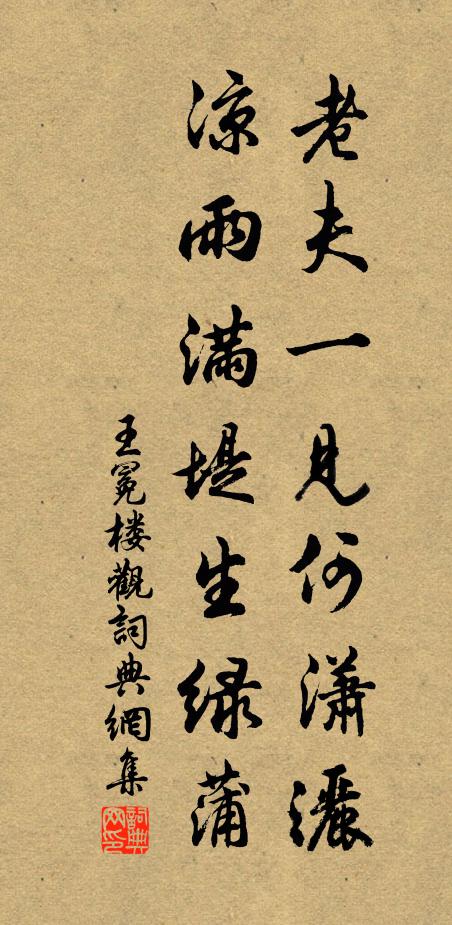 老夫一見何瀟灑
凉雨滿堤生緑蒲
王冕楼觀詞典網集
詞典網印